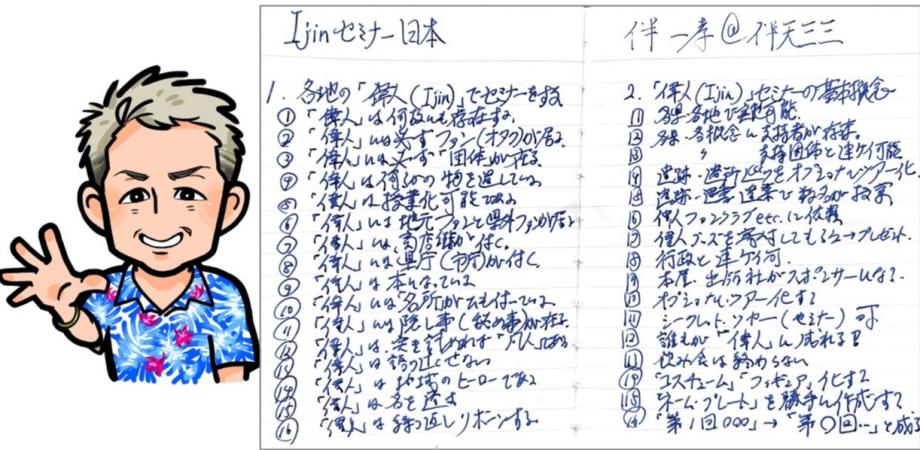 Ijinセミナー日本
1. 各地の「偉人(Ijin)」でセミナーをする
① 「偉人」は何処にも存在する
② 「偉人」には必ずファン(オタク)が居る
③ 「偉人」には必ず団体が在る
④ 「偉人」は何かの物を遺している
⑤ 「偉人」は授業化可能である
⑥ 「偉人」には地元ファンと県外ファンが居る
⑦ 「偉人」には、商店街が付く。
⑧ 「偉人」には県庁(市庁)が付く
⑨ 「偉人」は本になっている
⑩ 「偉人」には名所がひも付いている
⑪ 「偉人」には隠し事(秘め事)が在る
⑫ 「偉人」は
⑬ 「偉人」は
⑭ 「偉人」は地域のヒーローである
⑮ 「偉人」は名を遺す
⑯ 「偉人」は繰り返しリボーンする
伴一孝@伴天三三
2. 「偉人(Ijin)」セミナーの基本概念
⑪ 各県各地で実施可能
⑫ 各県各概念に支持者が存在。
⑬ 〃 支持団体と連ケイ可能
⑭ オプショナルツアー化
⑯ 偉人ファンクラブetc.に依頼
⑰ 偉人グッズを寄付してもらう→プレゼント
⑱ 行政と連ケイ可。
⑲ 本屋、出版社がスポンサーになる?
オプショナルツアー化する
シークレット・ソヤー(セミナー)可
誰もが「偉人」に成れる!!
飲み会は終わらない
「コスチューム」「フィギュア」化する
「ネーム・プレート」を勝手に作成する
「第1回〇〇〇」→「第〇回…」と成る